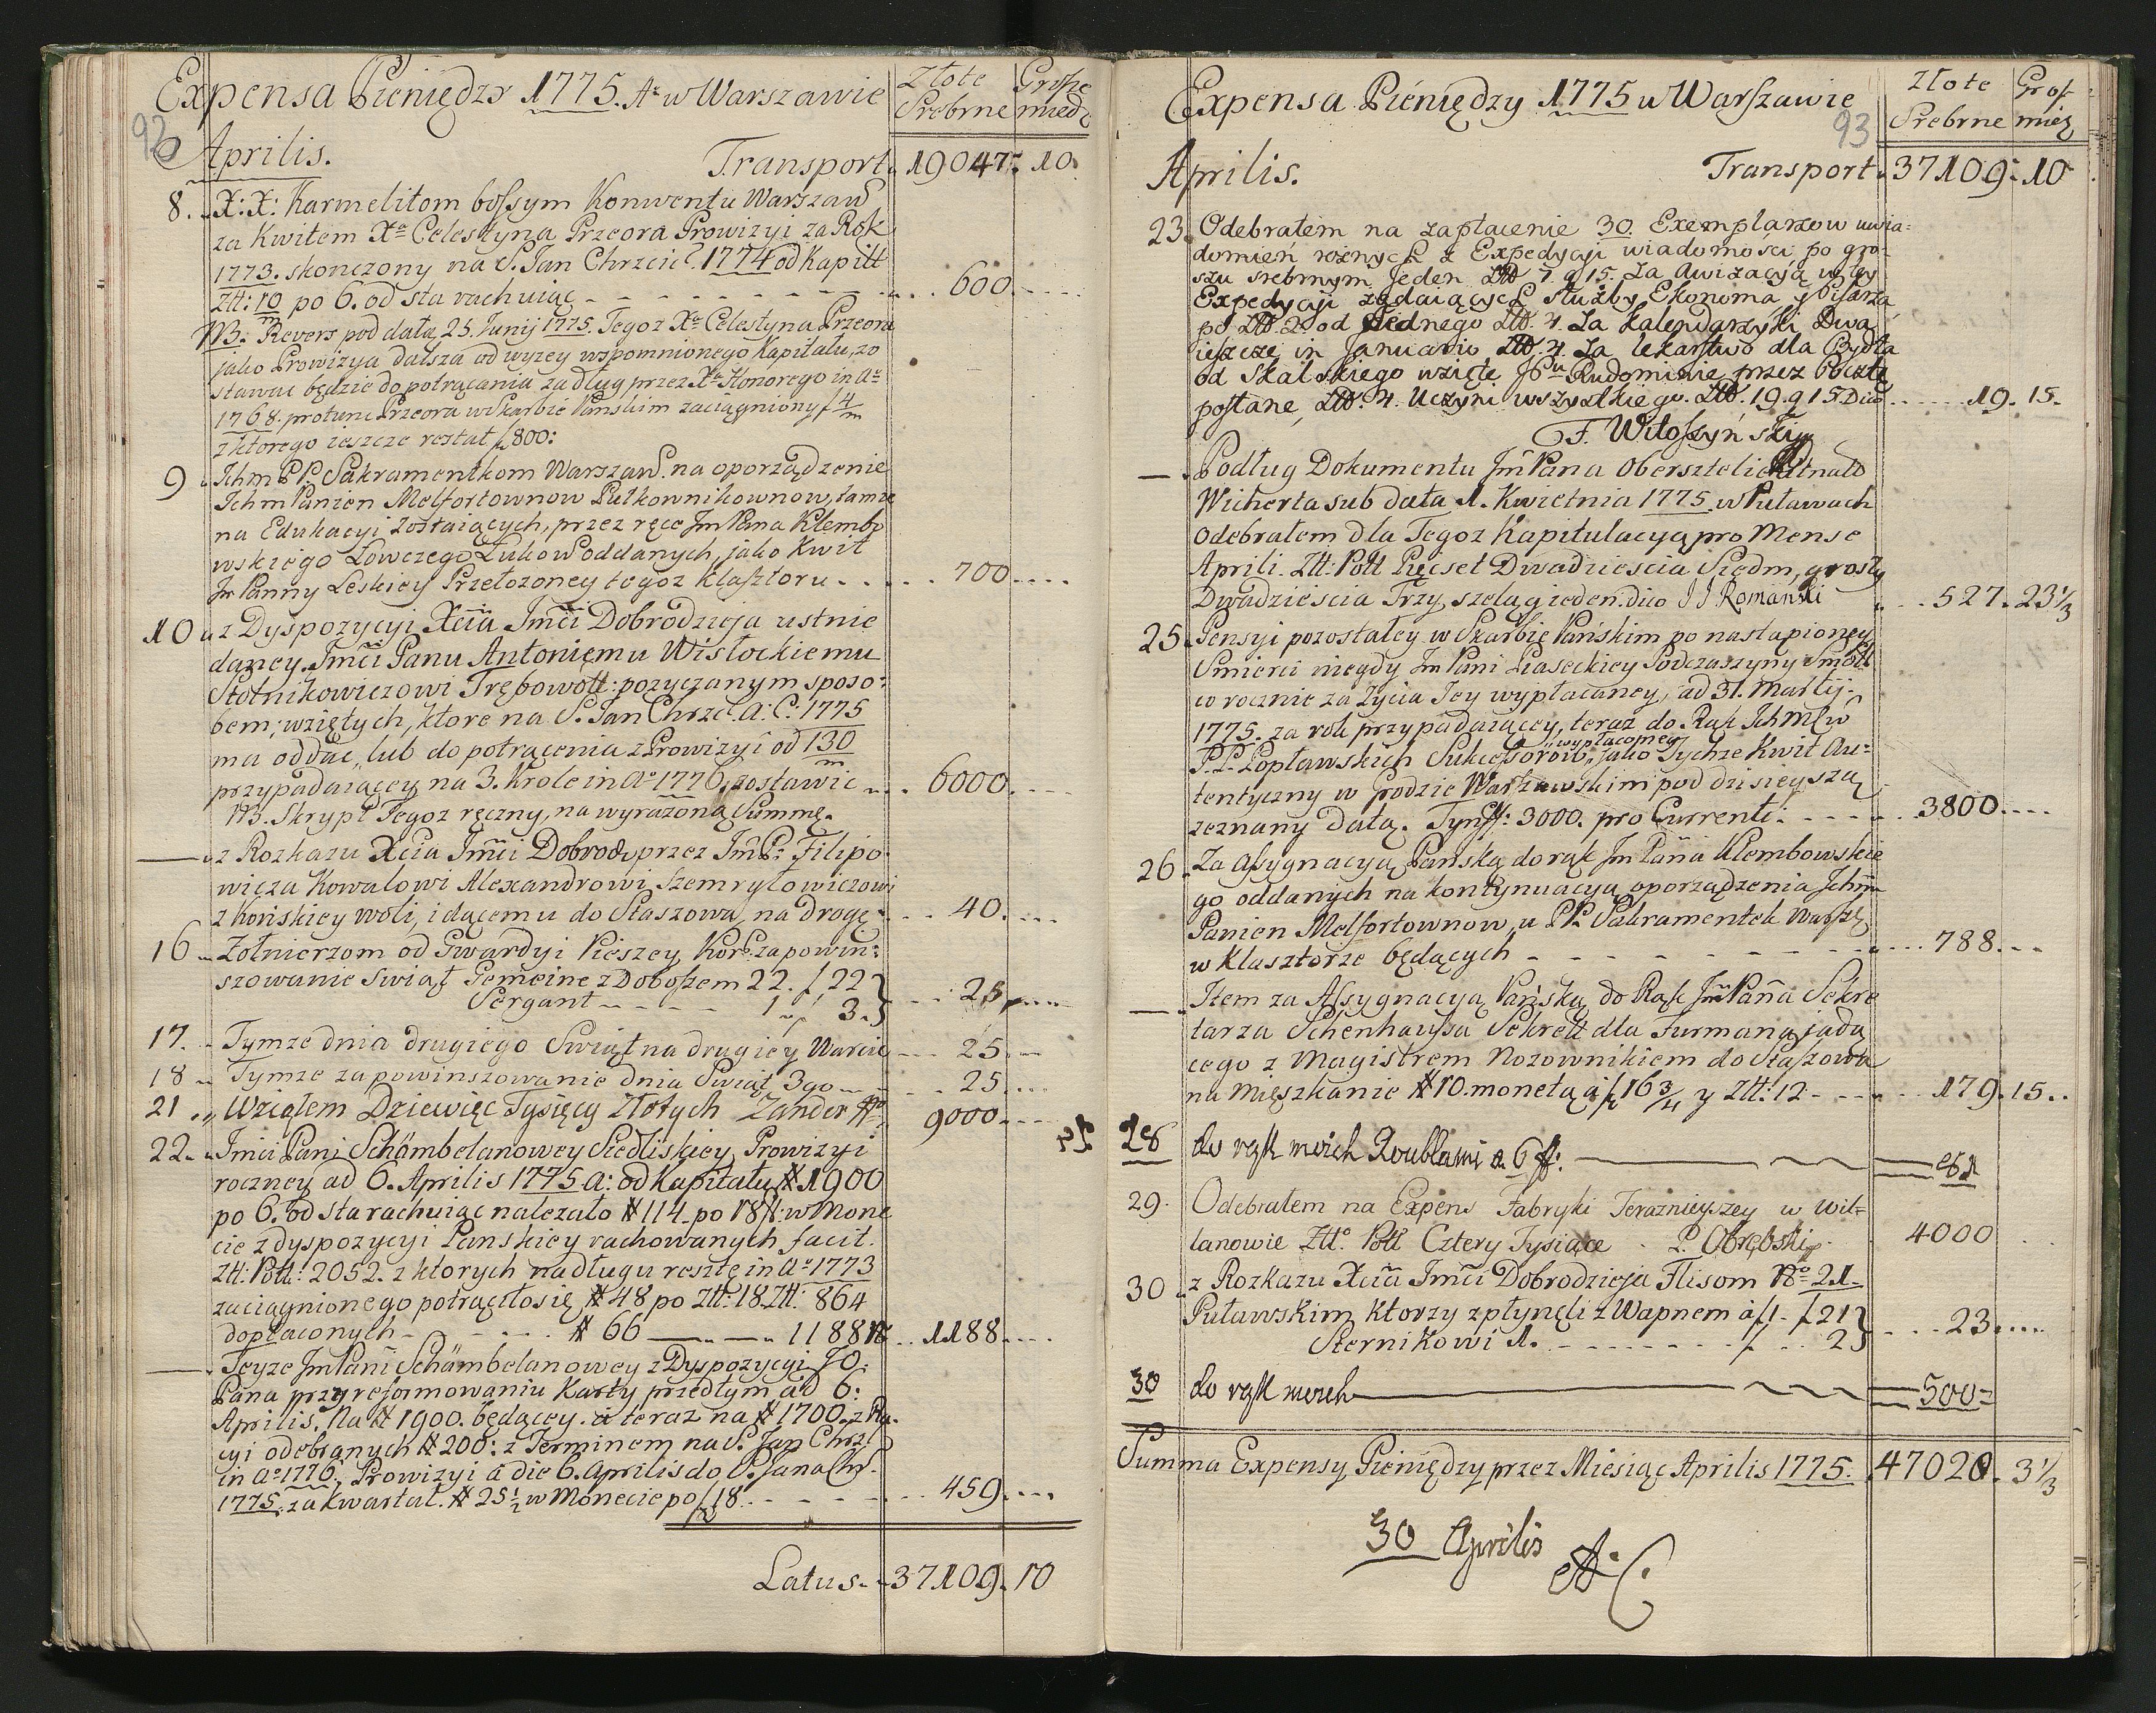 Expensa Pieniędzy 1775. Ao w Warszawie
Złote Srebrne
Grosze miedz
92
Aprilis.
Transport. 19047. 10.
8. X: X: Karmelitom bossym Konwentu Warszaw
za Kwitem Xa Celestyna Przeora Prowizyi za Rok
1773. skonczony na S. Jan Chrzcić. 1774 od Kapitt
Ztt: 10/m po 6. od sta rachuiąc - - - 600.
NB: Revers pod datą 25. Junij 1775. Tegoz Xa Celestyna Przeora
jako Prowizya dalsza od wyzey wspomnionego Kapitału, zo
stawac będzie do potrącania za dług przez Xa Honorego in Ao
1768. protunc Przeora w Skarbie Pańskim zaciągniony f 4/m
z ktorego ieszcze restat f 800:
9 Ichm PP. Sakramentkom Warszaw. na oporządzenie
Ichm Panien Melfortownow Pułkownikownow, tamze
na Edukacyi zostaiących, przez ręce Jm Pana Klembo
wskiego Łowczego Łukow oddanych, jako Kwit
Jm Panny Leskiey Przełozoney tegoz Klasztoru . . . 700
10 z Dyspozycyi Xcia Jmci Dobrodzieja ustnie
daney. Jmci Panu Antoniemu Wisłockiemu
Stolnikowiczowi Trębowoll: pozyczanym sposo:
bem; wziętych, ktore na S. Jan Chrzc. A: C: 1775
ma oddac, lub do potrącenia z Prowizyi od 130/m
przypadaiącey na 3. Krole in Ao 1776. zostawic . . 6000.
NB. Skrypt Tegoz ręczny, na wyrazoną Summę.
— z Rozkazu Xcia Jmci Dobrod. przez Jm P: Filipo
wicza Kowalowi Alexandrowi Szemryłowiczowi
z Końskiey woli, idącemu do Staszowa, na drogę . . 40.
16 Zołnierzom od Gwardyi Pieszey Kor. za powin:
szowanie Swiąt Gemeine z Doboszem 22. f 22
Sergant - - - - 1 f 3. } . . 25
17. Tymze dnia drugiego Swiąt na drugiey Warcie - - 25.
18 Tymze za powinszowanie dnia Swiąt 3go - - 25.
21 Wziąłem Dziewięć Tysięcy Złotych Zander 9000
22. Jmci Pani Schämbelanowey Siedliskiey Prowizyi
roczney ad 6. Aprilis 1775 a: od Kapitału # 1900
po 6. od sta rachuiąc nalezało # 114 po 18 f: w Mone
cie z dyspozycyi Panskiey rachowanych facit.
Ztt: Poll: 2052. z ktorych na długu resztę in Ao 1773
zaciągnionego potrąciło się # 48 po Ztt: 18. Ztt: 864
dopłaconych - - - # 66 — — 1188 . . 1188.
— Teyze Jm Pani Schämbelanowey z Dyspozycyi JO:
Pana przy reformowaniu Karty przedtym ad 6:
Aprilis. Na # 1900. będącey. a teraz na # 1700. z Ra
cyi odebranych # 200: z Terminem na S. Jan Chrz.
in Ao 1776. Prowizyi a die 6. Aprilis do S. Jana Chr.
1775. za kwartał. # 25½ w Monecie po f 18. - - - 459.
Latus. 37109. 10
Expensa Pieniędzy 1775 w Warszawie
Złote Srebrne
Grosz miedz
93
Aprilis.
Transport. 37109. 10
23. Odebrałem na zapłacenie 30. Exemplarzow uwia:
domień roznych z Expedycyi wiadomości, po gro-
szu srebrnym jeden Ztt 7 g 15. Za Awizacyą w tey
Expedycyi żądaiących służby Ekonoma y Pisarza
po Ztt. 2. od jednego Ztt. 4. Za Kalendarzyki Dwa
ieszcze in Januario Ztt. 4. Za lekarstwo dla Bydła
od Skalskiego wzięte JPu Rudominie przez Pocztę
posłane, Ztt. 4. Uczyni wszystkiego. Ztt. 19. g 15. Dico . . . 19. 15.
F. Witoszyński
— Podług Dokumentu Jm Pana Obersztelieutnanta
Wicherta sub data 1. Kwietnia 1775. w Puławach
Odebrałem dla Tegoz Kapitulacyą pro Mense
Aprili. Ztt: Poll Pięcset Dwadziescia Siedm, groszy
Dwadziescia Trzy, szeląg ieden. dico J J Romański . . 527. 23⅓
25. Pensyi pozostałey w Skarbie Pańskim po nastąpioney
Smierci niegdy Jm Pani Piaseckiey Podczaszyny Smoll
co rocznie za Zycia Jey wypłacaney, ad 31. Martij.
1775. za rok przypadaiącey, teraz do Rąk Ichmciów
P.P. Popławskich Sukcessorów, wypłaconey jako Tychze Kwit Au:
tentyczny w Grodzie Warszawskim pod dzisieyszą
zeznany datą. Tynff: 3000. pro Currenti. - - - 3800.
26. Za Assygnacyą Pańską do rąk Jm Pana Klembowskie
go oddanych na kontynuacyą oporządzenia Ichm
Panien Melfortownow, u PP. Sakramentek Warsz.
w Klasztorze będących - - - - - 788.
— Item za Assygnacyą Pańską do Rąk Jm Pana Sekre
tarza Schenhaussa Sekrett dla Furmana jadą
cego z Magistrem Nozownikiem do Staszowa
na mieszkanie # 10. monetą a f 16¾ y Ztt: 12 - - - 179. 15.
28 do rąk moich Roublami a 6 f: —
29. Odebrałem na Expens Fabryki Teraznieyszey w Wil=
lanowie Ztto Poll Cztery Tysiące . P. Obrębski . 4000
30 z Rozkazu Xcia Jmci Dobrodzieja Flisom No 21
Puławskim, ktorzy zpłynęli z Wapnem a f 1. f 21
Sternikowi 1. - - - - f . . 2 } . . 23.
30 do rąk moich — 500
Summa Expensy Pieniędzy przez Miesiąc Aprilis 1775. 47020. 3⅓
30 Aprilis
A. C.